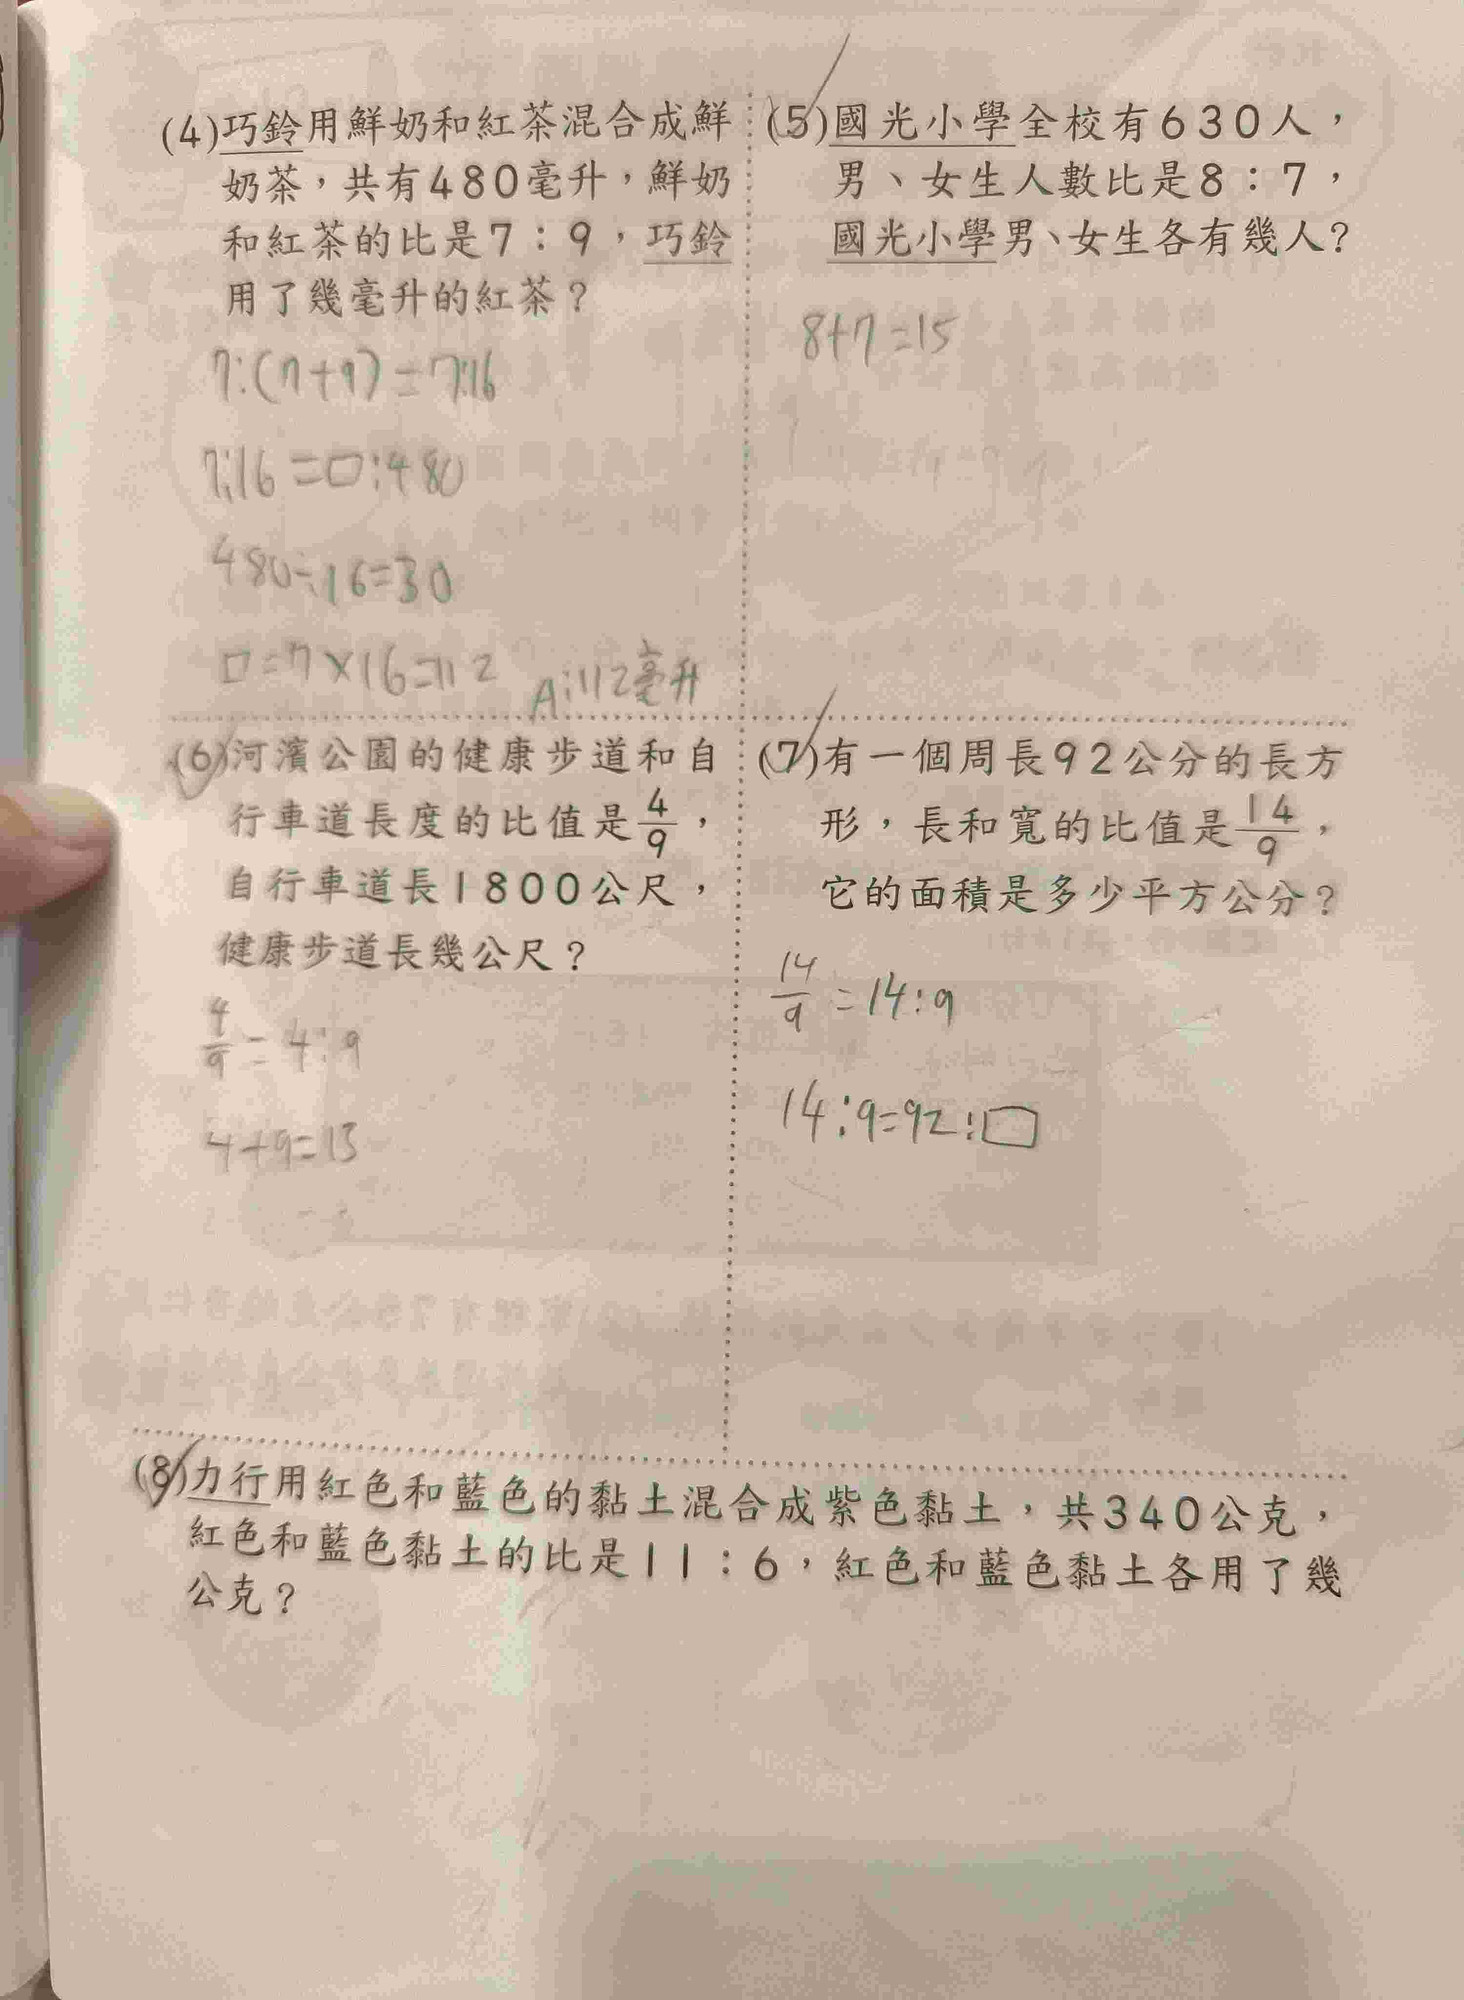 (4)巧鈴用鮮奶和紅茶混合成鮮
奶茶，共有480毫升，鮮奶
和紅茶的比是7：9，巧鈴
用了幾毫升的紅茶？
7:(7+9)=7:16
7:16=□:480
480÷16=30
□=7×16=112
A:112毫升
(5)國光小學全校有630人，
男、女生人數比是8：7，
國光小學男、女生各有幾人？
8+7=15
(6)河濱公園的健康步道和自
行車道長度的比值是4/9，
自行車道長1800公尺，
健康步道長幾公尺？
4/9=4:9
4+9=13
(7)有一個周長92公分的長方
形，長和寬的比值是14/9，
它的面積是多少平方公分？
14/9=14:9
14:9=92:□
(8)力行用紅色和藍色的黏土混合成紫色黏土，共340公克，
紅色和藍色黏土的比是11：6，紅色和藍色黏土各用了幾
公克？